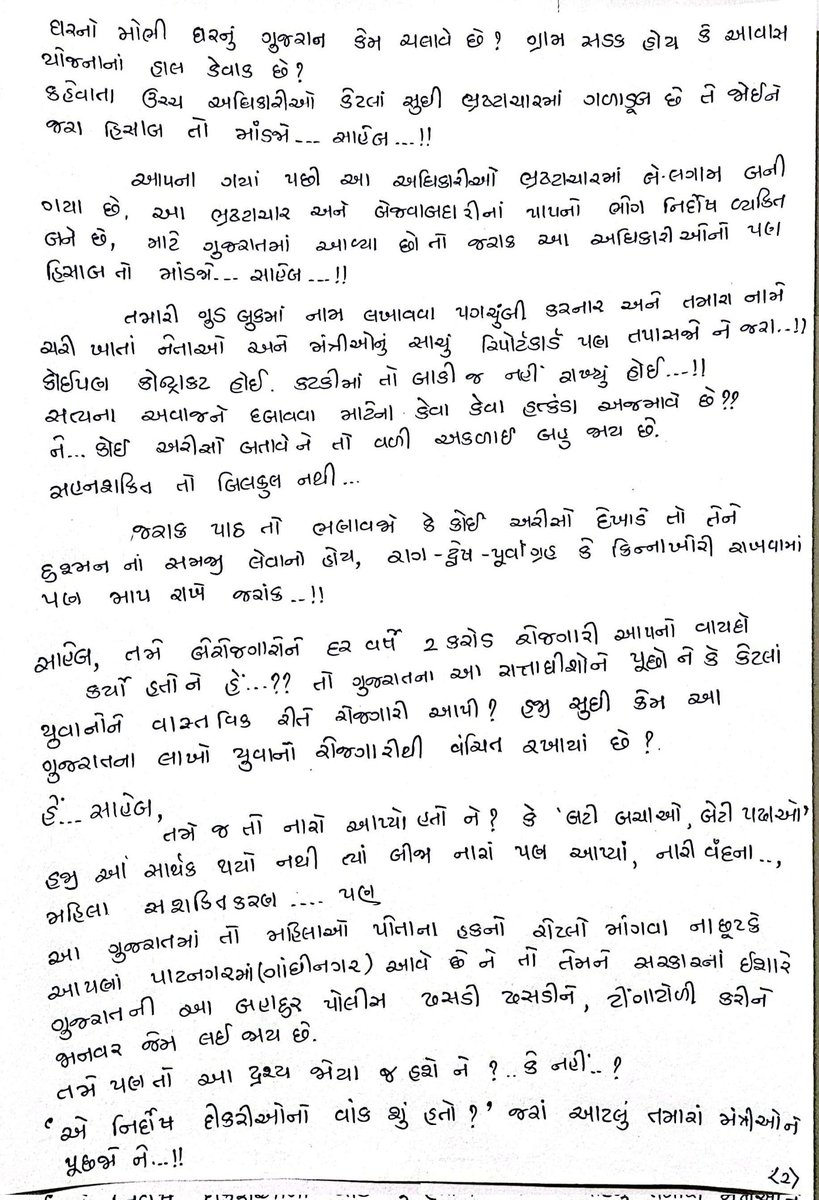 ઘરનો મોભી ઘરનું ગુજરાન કેમ ચલાવે છે? ગ્રામ સડક હોય કે આવાસ
યોજનાનાં હાલ કેવાક છે?
કહેવાતા ઉચ્ચ અધિકારીઓ કેટલાં સુધી ભ્રષ્ટાચારમાં ગળાડૂબ છે તે જોઈને
જરા હિસાબ તો માંડજો--- સાહેબ...!!
આપના ગયાં પછી આ અધિકારીઓ ભ્રષ્ટાચારમાં બે-લગામ બની
ગયા છે. આ ભ્રષ્ટાચાર અને બેજવાબદારીનાં પાપનો ભોગ નિર્દોષ વ્યકિત
બને છે, માટે ગુજરાતમાં આવ્યા છો તો જરાક આ અધિકારીઓનો પણ
હિસાબ તો માંડજો--- સાહેબ...!!
તમારી ગુડ બુકમાં નામ લખાવવા પગચુંબી કરનાર અને તમારા નામે
ચરી ખાતાં નેતાઓ અને મંત્રીઓનું સાચું રિપોર્ટકાર્ડ પણ તપાસજો ને જરા..!!
કોઈપણ કોન્ટ્રાકટ હોઈ. કટકીમાં તો બાકી જ નહીં રાખ્યું હોઈ...!!
સત્યના અવાજને દબાવવા માટેના કેવા કેવા હત્કંડા અજમાવે છે??
ને... કોઈ અરીસો બતાવે ને તો વળી અકળાઈ બહુ જાય છે.
સહનશકિત તો બિલકુલ નથી...
જરાક પાઠ તો ભણાવજો કે કોઈ અરીસો દેખાડે તો તેને
દુશ્મન નાં સમજી લેવાનો હોય, રાગ-દ્વેષ-પૂર્વાગ્રહ કે કિન્નાખોરી રાખવામાં
પણ માપ રાખે જરાંક..!!
સાહેબ, તમે બેરોજગારોને દર વર્ષે 2 કરોડ રોજગારી આપનો વાયદો
કર્યો હતો ને હેં...?? તો ગુજરાતના આ સત્તાધીશોને પૂછો ને કે કેટલાં
યુવાનોને વાસ્તવિક રીતે રોજગારી આપી? હજી સુધી કેમ આ
ગુજરાતના લાખો યુવાનો રોજગારીથી વંચિત રખાયાં છે?
હેં... સાહેબ,
તમે જ તો નારો આપ્યો હતો ને? કે 'બેટી બચાઓ, બેટી પઢાઓ'
હજી આ સાર્થક થયો નથી ત્યાં બીજા નારા પણ આપ્યાં, નારી વંદના..,
મહિલા સશકિતકરણ .... પણ
આ ગુજરાતમાં તો મહિલાઓ પોતાના હકનો રોટલો માંગવા ના છૂટકે
આપણાં પાટનગરમાં(ગાંધીનગર) આવે છે ને તો તેમને સરકારનાં ઈશારે
ગુજરાતની આ બહાદુર પોલીસ ઢસડી ઢસડીને, ટીંગાટોળી કરીને
જાનવર જેમ લઈ જાય છે.
તમે પણ તો આ દ્રશ્ય જોયા જ હશે ને?..કે નહીં..?
'એ નિર્દોષ દીકરીઓનો વાંક શું હતો?' જરાં આટલું તમારાં મંત્રીઓને
પૂછજો ને...!!
(2)